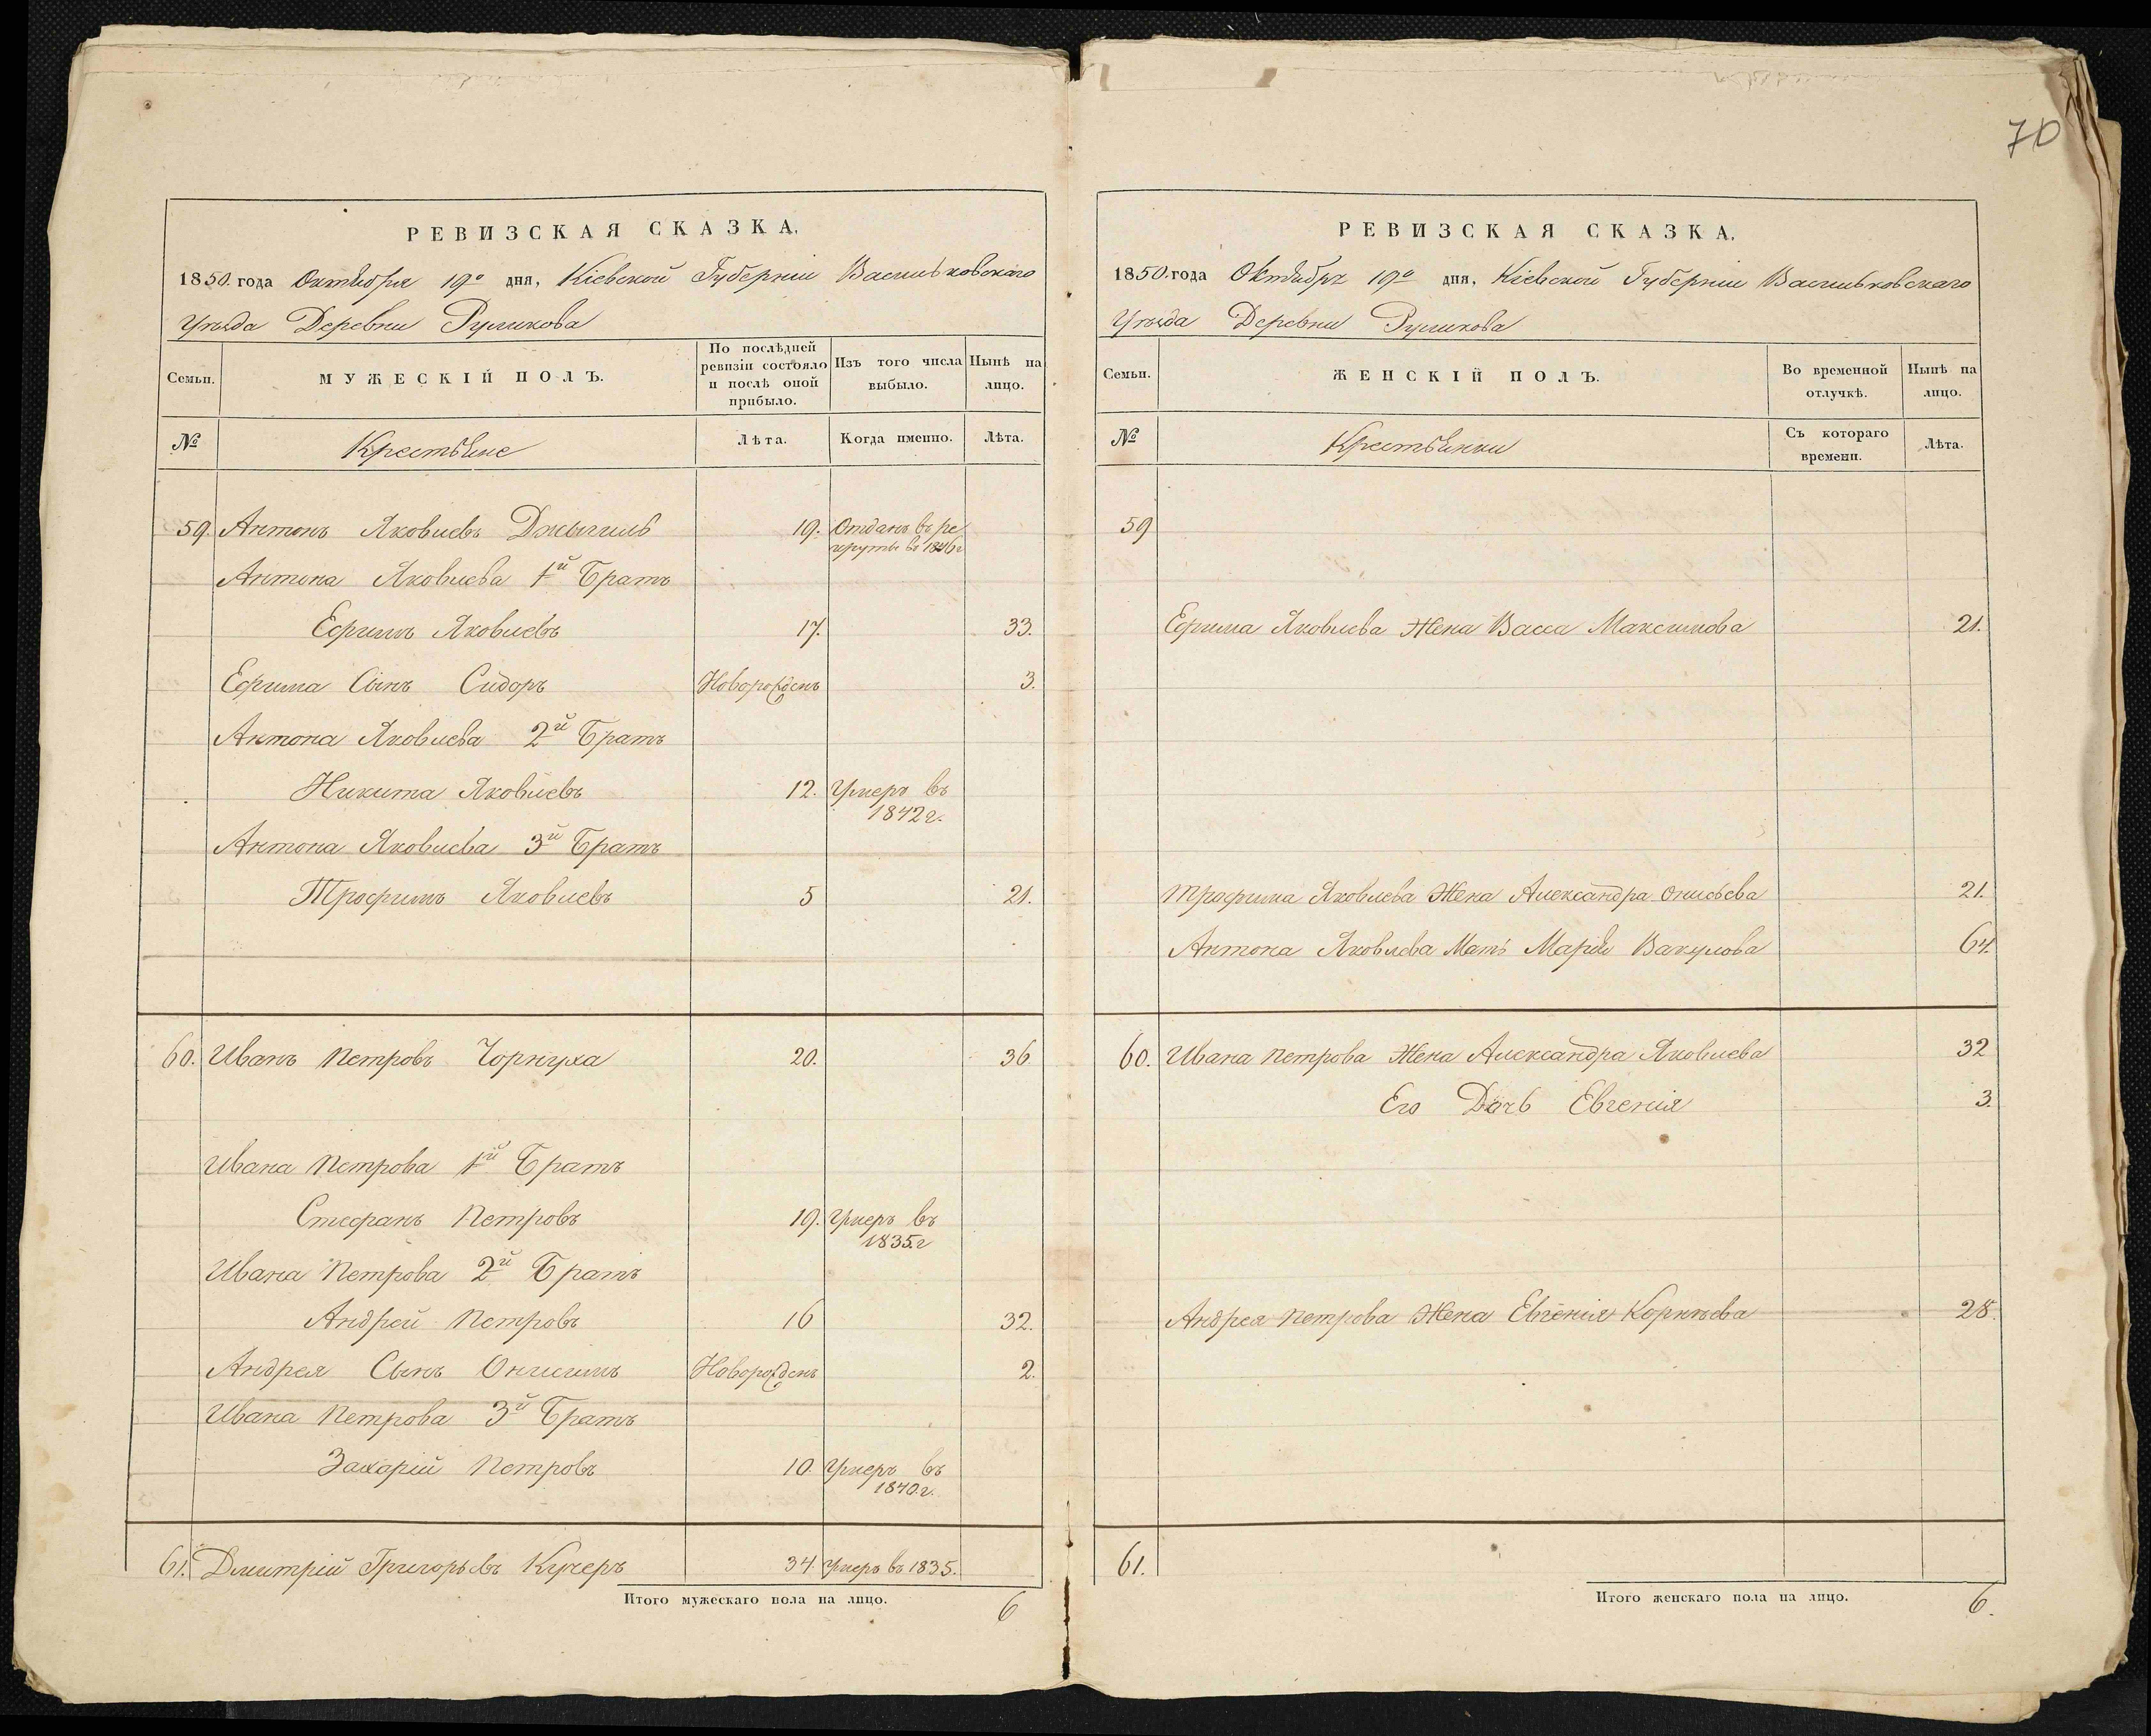 70
РЕВИЗСКАЯ СКАЗКА.
1850. года Октября 19го дня, Кіевской Губерніи Васильковскаго
Уѣзда Деревни Руликова
Семьи.
МУЖЕСКІЙ ПОЛЪ.
По послѣдней ревизіи состояло и послѣ оной прибыло.
Изъ того числа выбыло.
Нынѣ на лицо.
№
Крестьяне
Лѣта.
Когда именно.
Лѣта.
59. Антонъ Яковлевъ 19. Отданъ въ ре
круты въ 1846г
Антона Яковлева 1й Братъ
Ефимъ Яковлевъ 17. 33.
Ефима Сынъ Сидоръ Новорожденъ 3.
Антона Яковлева 2й Братъ
Никита Яковлевъ 12. Умеръ въ
1842г.
Антона Яковлева 3й Братъ
Трофимъ Яковлевъ 5 21.
60. Иванъ Петровъ Чорнуха 20. 36.
Ивана Петрова 1й Братъ
Стефанъ Петровъ 19. Умеръ въ
1835.г
Ивана Петрова 2й Братъ
Андрей Петровъ 16 32.
Андрея Сынъ Онисимъ Новорожденъ 2.
Ивана Петрова 3й Братъ
Захарій Петровъ 10. Умеръ въ
1840.г.
61. Дмитрій Григорьевъ Кучеръ 34. Умеръ въ 1835.
Итого мужескаго пола на лицо. 6
РЕВИЗСКАЯ СКАЗКА.
1850. года Октября 19го дня, Кіевской Губерніи Васильковскаго
Уѣзда Деревни Руликова
Семьи.
ЖЕНСКІЙ ПОЛЪ.
Во временной отлучкѣ.
Нынѣ на лицо.
№
Крестьянки
Съ котораго времени.
Лѣта.
59
Ефима Яковлева Жена Васса Максимова 21.
Трофима Яковлева Жена Александра Онисьева 21.
Антона Яковлева Мать Марія Вакулова 64.
60. Ивана Петрова Жена Александра Яковлева 32
Его Дочь Евгенія 3.
Андрея Петрова Жена Евгенія Корнѣева 28.
61.
Итого женскаго пола на лицо. 6.